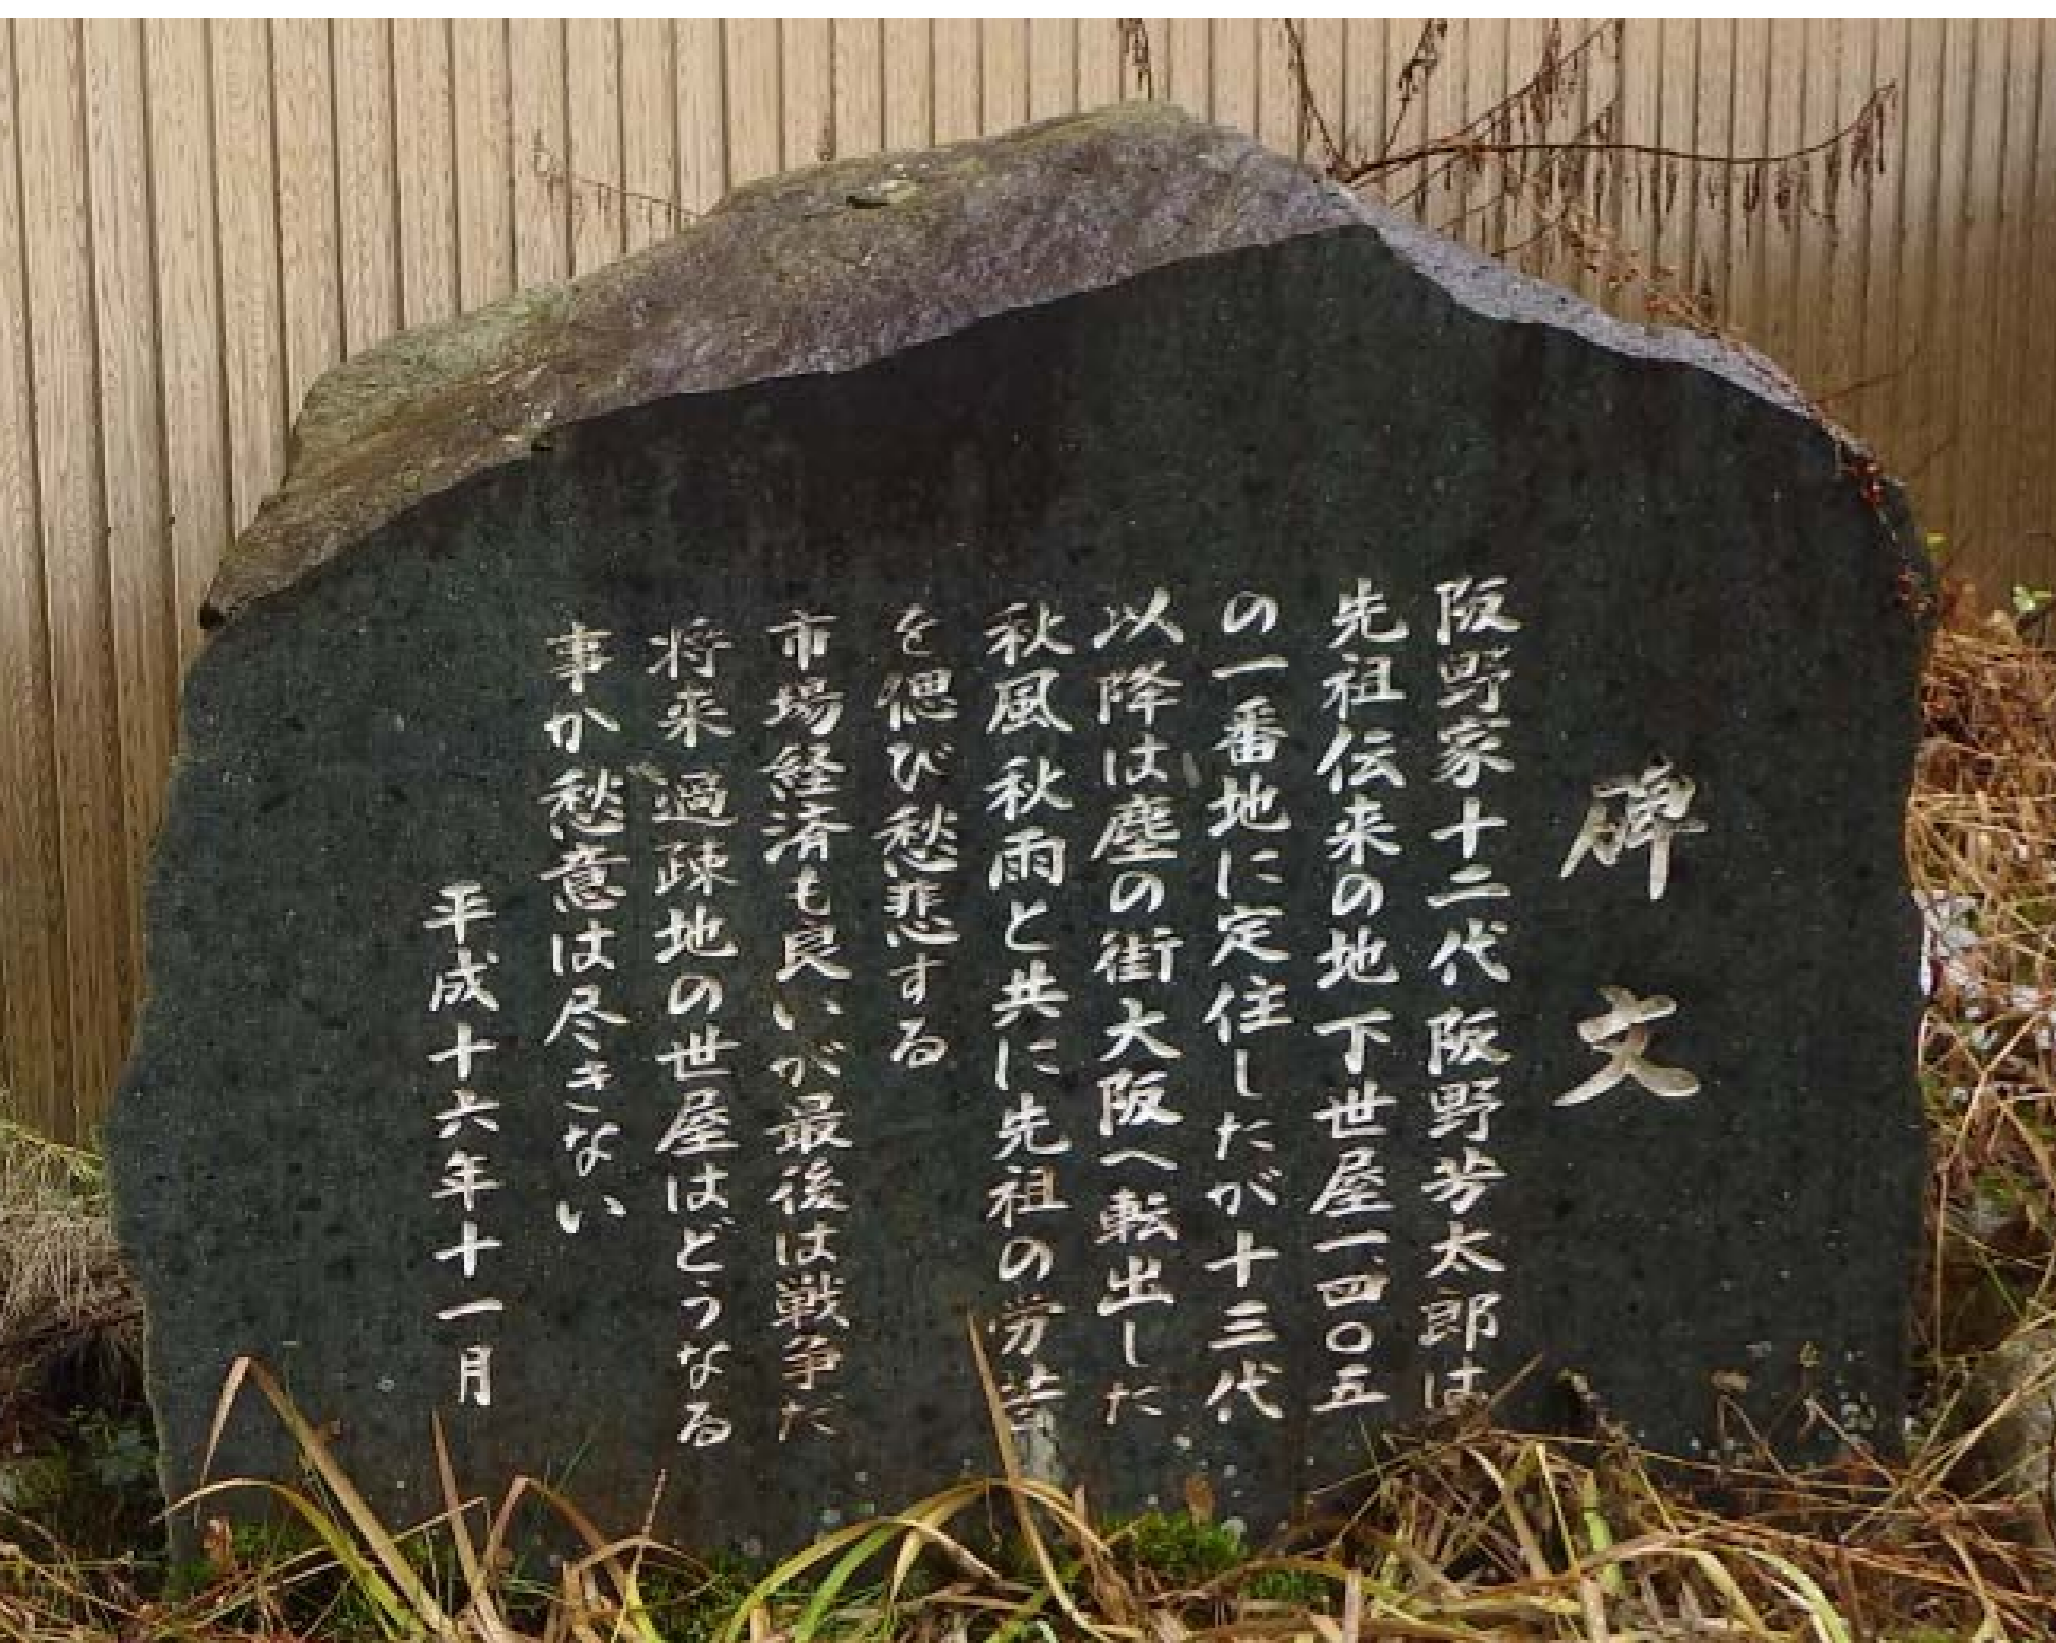 碑文
阪野家十二代阪野芳太郎は
先祖伝来の地下世屋一、四〇五
の一番地に定住したが十三代
以降は塵の街大阪へ転出した
秋風秋雨と共に先祖の労苦
を偲び愁悲する
市場経済も良いが最後は戦争だ
将来過疎地の世屋はどうなる
事か愁意は尽きない
平成十六年十一月